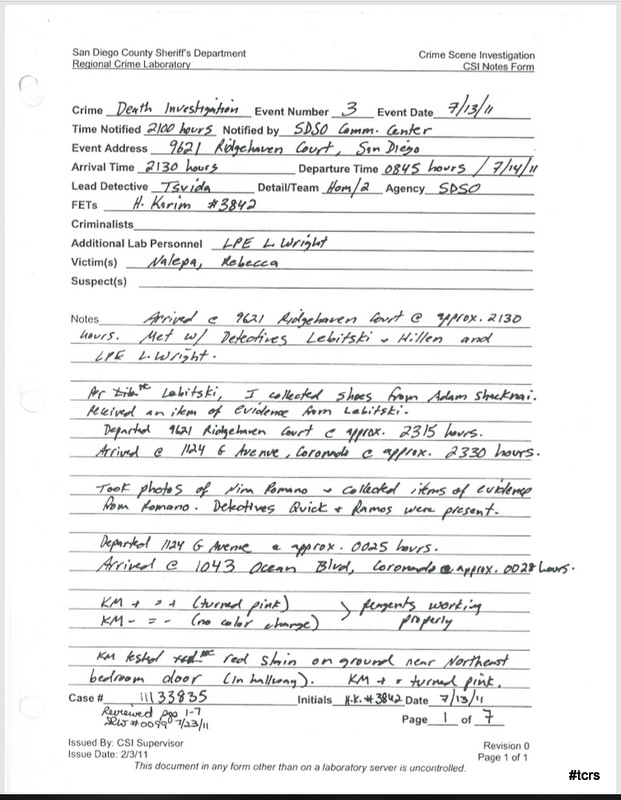 San Diego County Sheriff's Department
Crime Scene Investigation
Regional Crime Laboratory
CSI Notes Form
Crime Death Investigation Event Number 3 Event Date 7/13/11
Time Notified 2100 hours Notified by SDSO Comm. Center
Event Address 9621 Ridgehaven Court, San Diego
Arrival Time 2130 hours Departure Time 0845 hours / 7/14/11
Lead Detective Tsvida Detail/Team Hom/2 Agency SDSO
FETs H. Karim #3842
Criminalists
Additional Lab Personnel LPE L. Wright
Victim(s) Nalepa, Rebecca
Suspect(s)
Notes Arrived @ 9621 Ridgehaven Court @ approx. 2130
hours. Met w/ Detectives Lebitski + Hillen and
LPE L. Wright.
Per Lebitski, I collected shoes from Adam Shacknai.
Received an item of evidence from Lebitski.
Departed 9621 Ridgehaven Court @ approx. 2315 hours.
Arrived @ 1124 G Avenue, Coronado @ approx. 2330 hours.
Took photos of Nina Romano + collected items of evidence
from Romano. Detectives Quick + Ramos were present.
Departed 1124 G Avenue @ approx. 0025 hours.
Arrived @ 1043 Ocean Blvd, Coronado @ approx. 0028 hours.
KM + = + (turned pink) > Reagents working
KM - = - (no color change) properly
KM tested red stain on ground near Northeast
bedroom door (in hallway). KM + = turned pink.
Case # 11133835 Initials H.K. #3842 Date 7/13/11
Reviewed pgs 1-7
SRW #0099 7/23/11
Page 1 of 7
Issued By: CSI Supervisor
Issue Date: 2/3/11
Revision 0
Page 1 of 1
This document in any form other than on a laboratory server is uncontrolled.
#tcrs